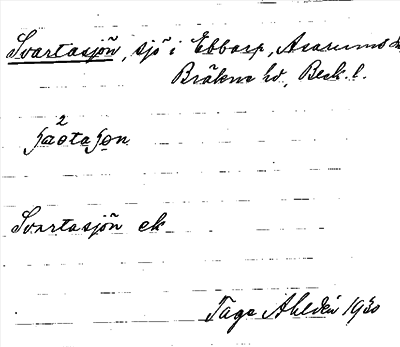 Svartasjön, sjö i Ebbarp, Asarums
Bräkne hd, Blek. l.
2
Svartasjön ek
Tage Ahldén 1930